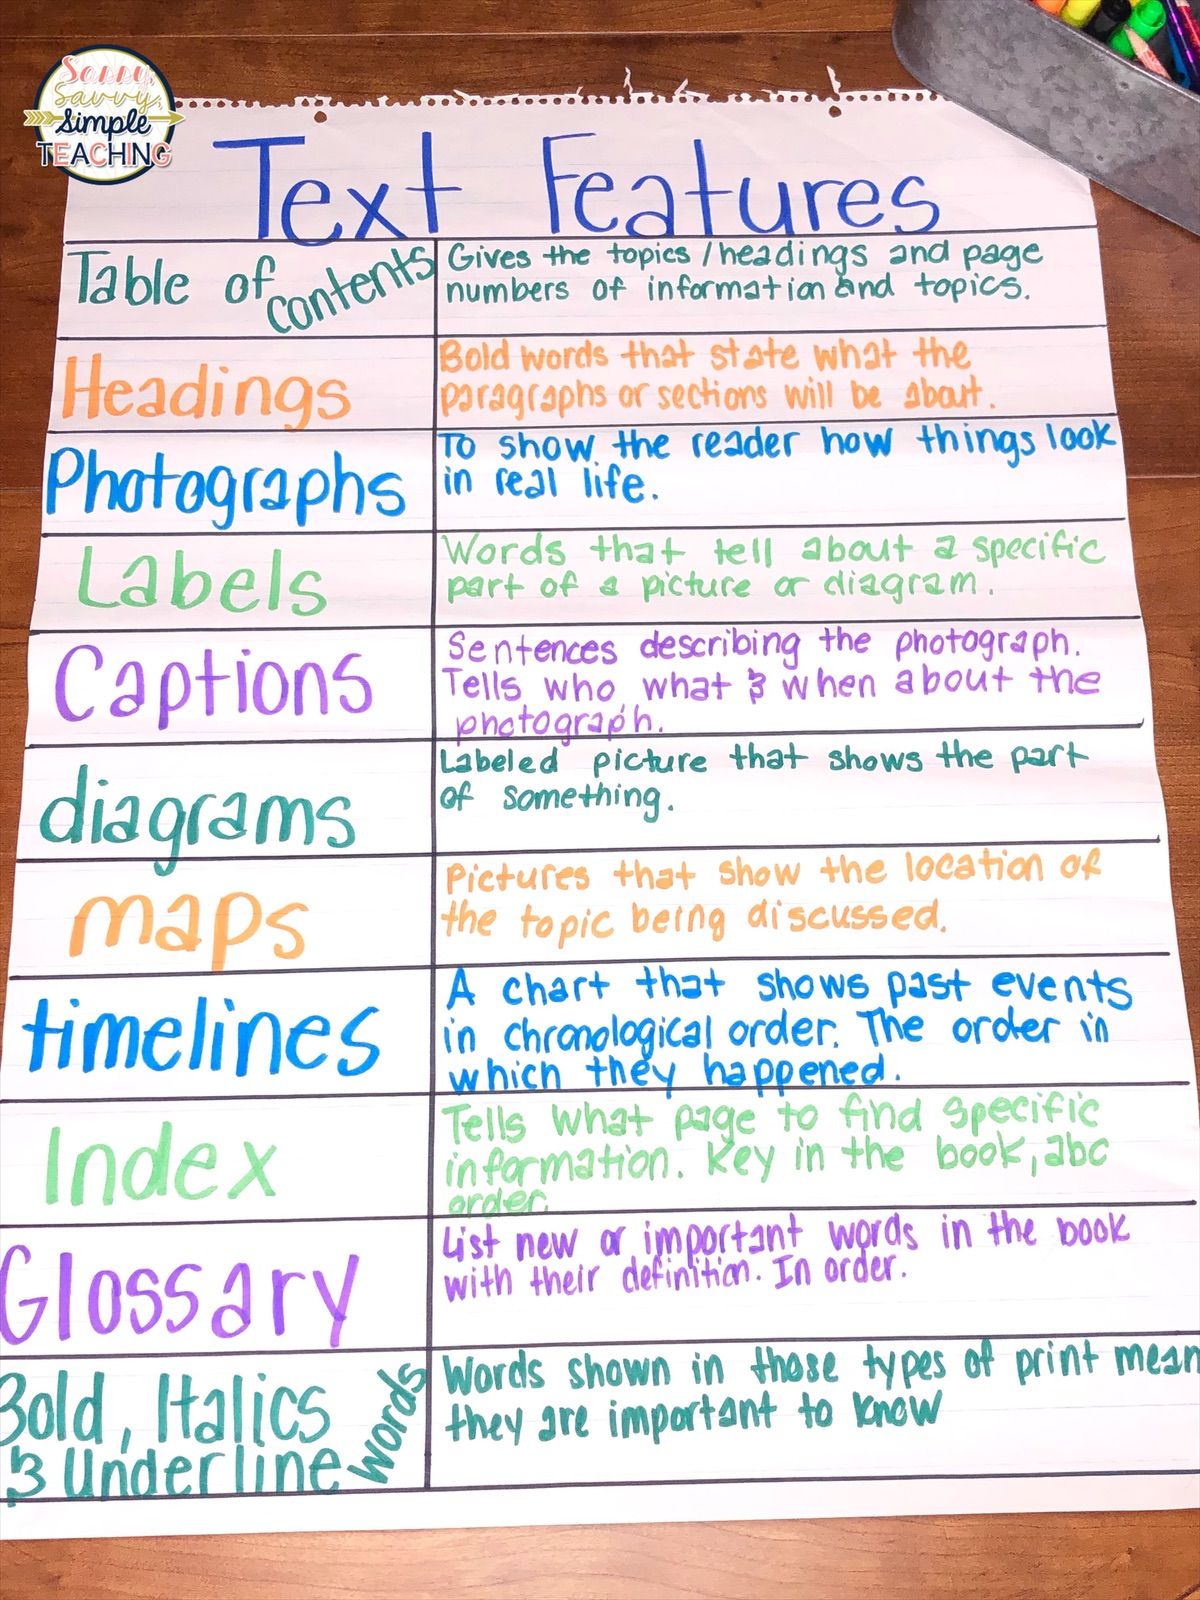 Sassy,
Savvy,
Simple
TEACHING
Text Features
Table of contents
Gives the topics/headings and page
numbers of information and topics.
Headings
Bold words that state what the
paragraphs or sections will be about.
Photographs
To show the reader how things look
in real life.
Labels
Words that tell about a specific
part of a picture or diagram.
Captions
Sentences describing the photograph.
Tells who what & when about the
photograph.
diagrams
Labeled picture that shows the part
of something.
maps
Pictures that show the location of
the topic being discussed.
timelines
A chart that shows past events
in chronological order. The order in
which they happened.
Index
Tells what page to find specific
information. Key in the book, abc
order.
Glossary
List new or important words in the book
with their definition. In order.
Bold, Italics
& Underline words
Words shown in those types of print mean
they are important to know